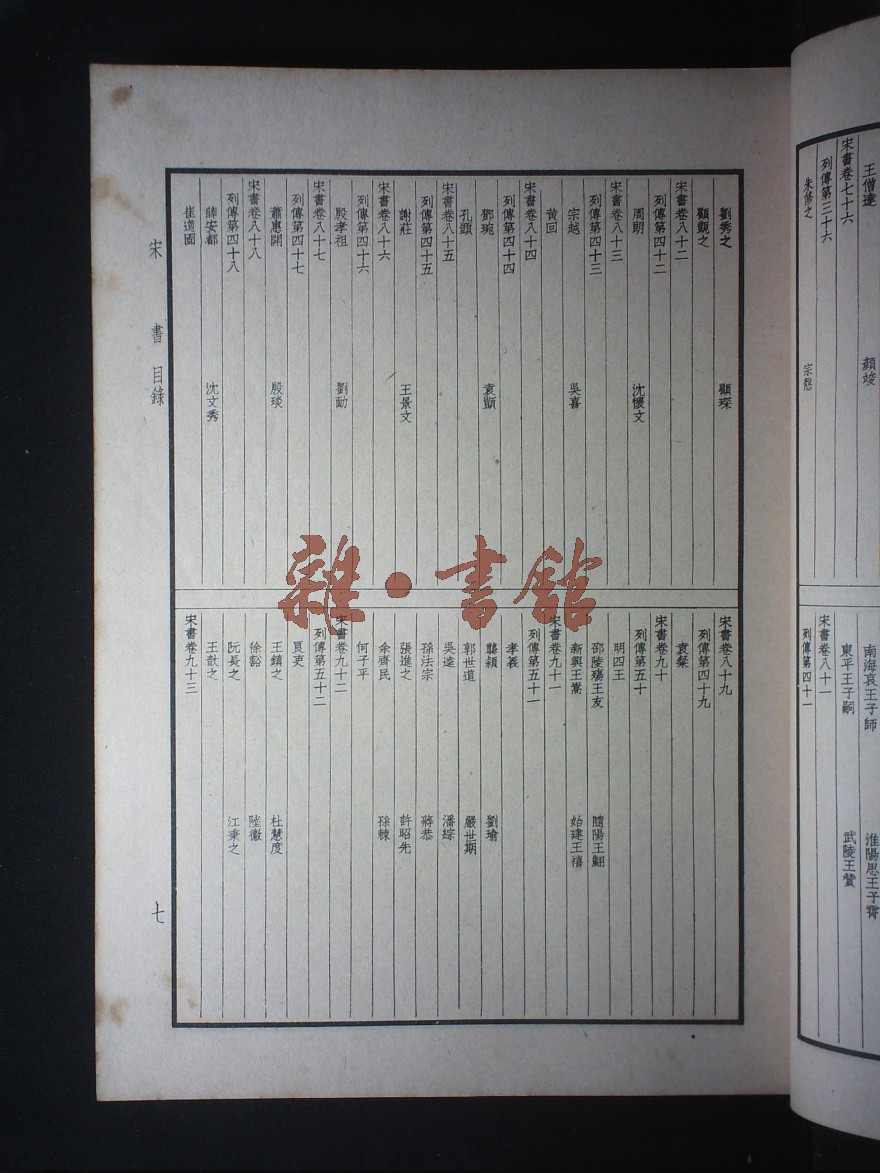 王僧達 顏竣
宋書卷七十六
列傳第三十六
朱脩之 宗愨
南海哀王子師 淮陽思王子霄
東平王子嗣 武陵王贊
宋書卷八十一
列傳第四十一
劉秀之 顧琛
顧覬之
宋書卷八十二
列傳第四十二
周朗 沈懷文
宋書卷八十三
列傳第四十三
宗越 吳喜
黄回
宋書卷八十四
列傳第四十四
鄧琬 袁顗
孔顗
宋書卷八十五
列傳第四十五
謝莊 王景文
宋書卷八十六
列傳第四十六
殷孝祖 劉勔
宋書卷八十七
列傳第四十七
蕭惠開 殷琰
宋書卷八十八
列傳第四十八
薛安都 沈文秀
崔道固
宋書卷八十九
列傳第四十九
袁粲
宋書卷九十
列傳第五十
明四王
邵陵殤王友 隨陽王翽
新興王嵩 始建王禧
宋書卷九十一
列傳第五十一
孝義
龔穎 劉瑜
郭世道 嚴世期
吳逵 潘綜
孫法宗 蔣恭
張進之 許昭先
余齊民 孫棘
何子平
宋書卷九十二
列傳第五十二
良吏
王鎮之 杜慧度
徐豁 陸徽
阮長之 江秉之
王歆之
宋書卷九十三
宋書 目錄
七
雜·書館